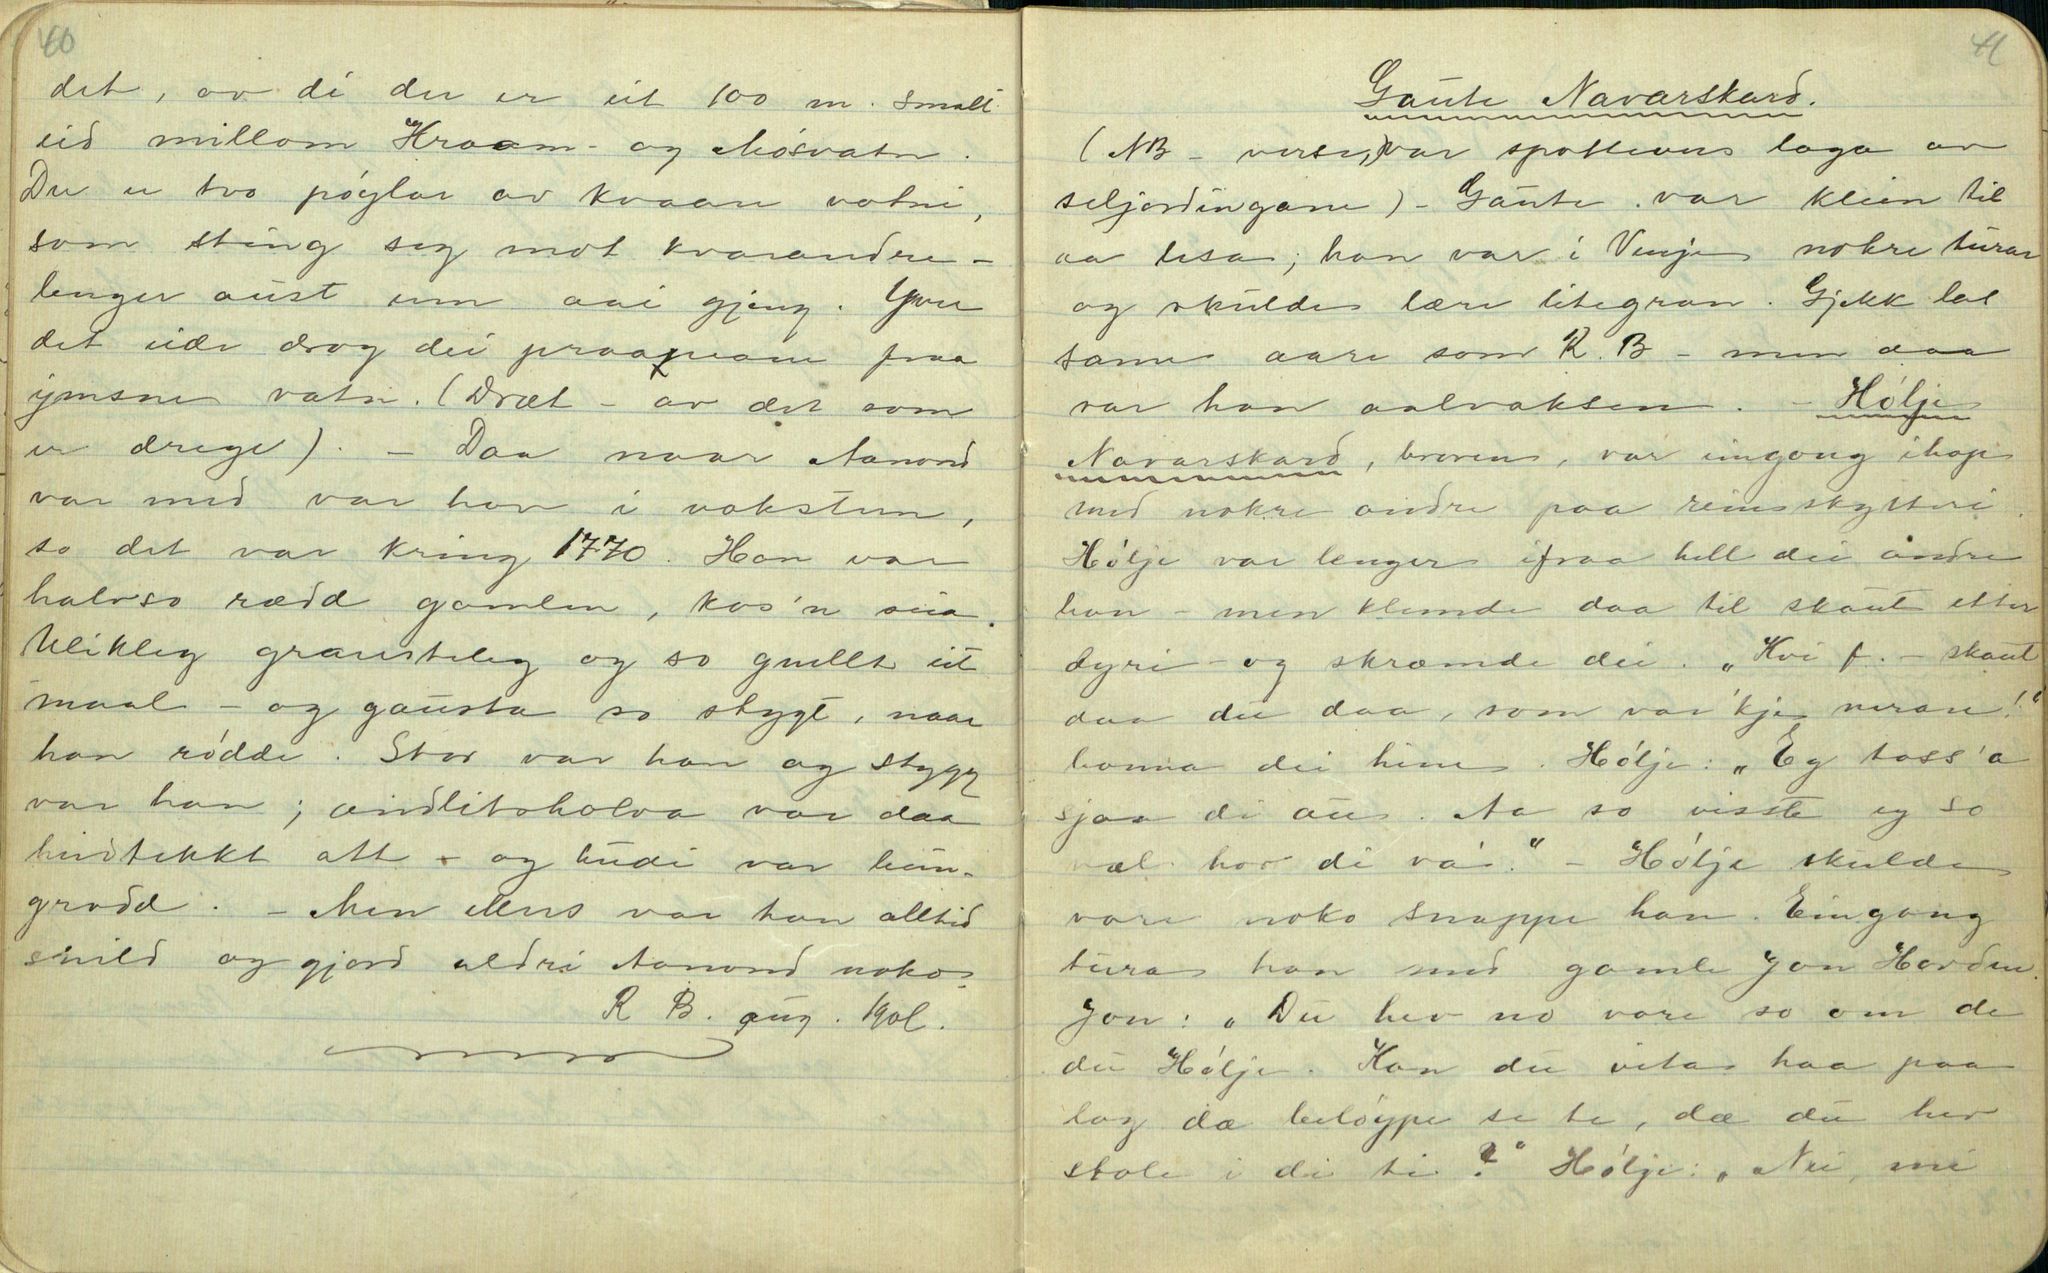 40
det, av di der er eit 100 m. smalt
eid millom Hraam- og Mósvatn.
Der er tvo póylar av kvaare vatni,
som sting seg mot kvarandre -
lenger aust um aai gjeng. Yver
det eide drog dei praamane fraa
ymsne vatn. (Dræt - av det som
er drege). - Daa naar Aanond
var med var han i voksteren,
so det var kring 1770. Han var
halvso rædd gamlen, kos'n saa.
Ulikleg grausteleg og so gnellt eit
maal - og gausta so stygt, naar
han ródde. Stor var han og stygg
var han; andlitsholva var daa
hudtekkt att - og hudi var bein-
grodd. - Men elles var han alltid
snild og gjord aldri Aanond noko.
R B. aug. 1901.
41
Gaute Navarskard.
(NB - verse, var spottevers laga av
seljordingane) - Gaute var klein til
aa lesa; han var i Vinje nokre turar
og skulde lære litegran. Gjekk las
same aare som R. B - men daa
var han aalvaksen. - Hólje
Navarskard, broren, var eingong ihop
med nokre andre paa reinsskytteri.
Hólje var lenger ifraa hell dei andre
han - men klemde daa til skaut etter
dyri - og skræmde dei. „Kvi f. - skaut
daa du daa, som var'kje neran!"
banna dei hine. Hólje: „Eg tass'a
sjaa di au. Aa so visste eg so
væl hor di va'." - Hólje skulde
vore noko snappe han. Eingong
tura han med gamle Jon Hovden.
Jon: „Du hev no vore so om de
du Hólje. Kan du vita haa paa
lag dæ beløype se te, dæ du hev
stole i di ti?" Hólje: „Nei, mi